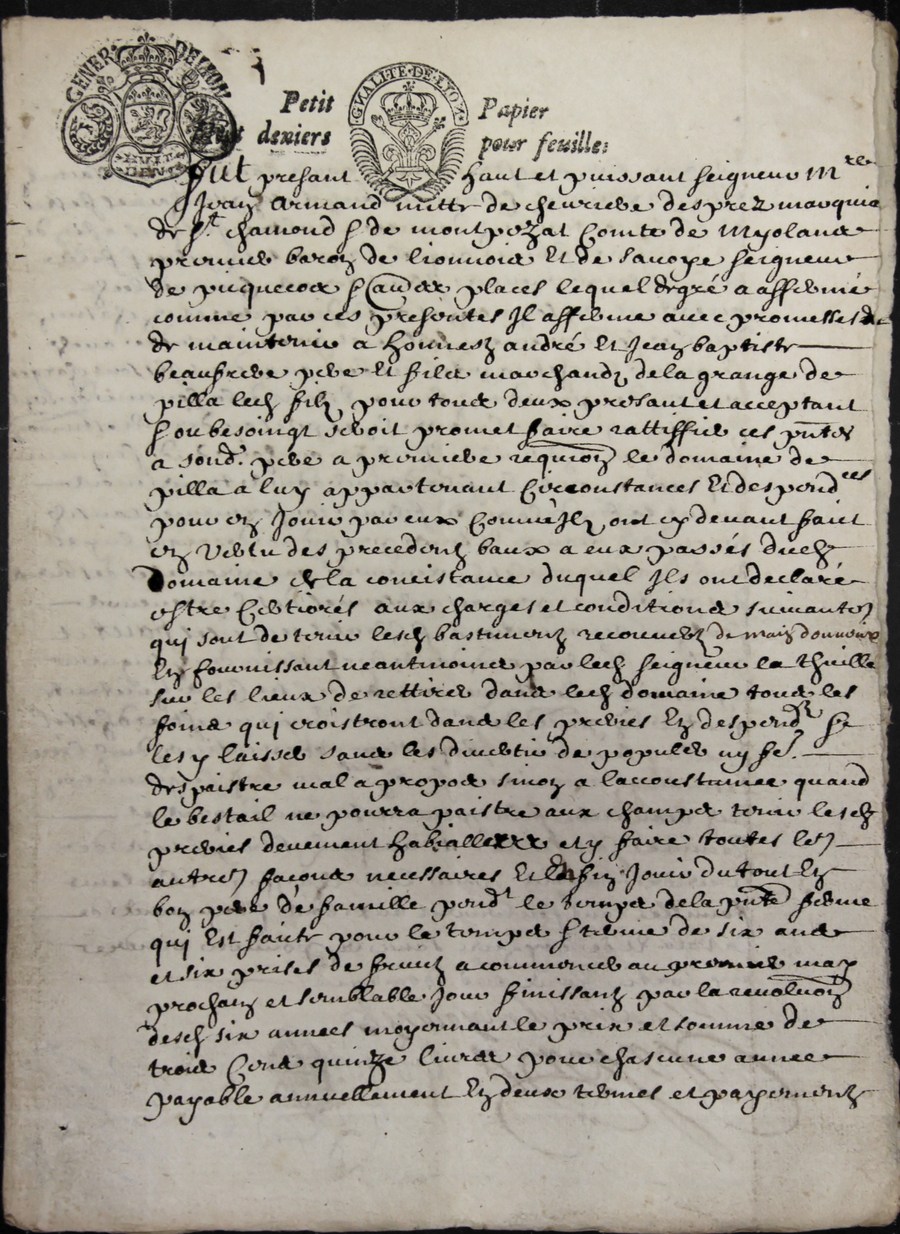 GENER DE LYON
GNALITE·DE·LYO
Petit Papier
Huit deniers pour feuille:
HVIT
DEN
Fut presant haut et puissant seigneur Mre
Jean Armand mitte de chevriere desprez marquis
de St. chamond sr de montpezat Comte de Myolans
premier baron de lionnois Et de Savoye seigneur
de picquecos et aues places lequel de gré a affermé
comme par ces presentes Il afferme avec promesses
de maintenir a honnes andré Et Jean baptiste
beaufrere pere Et filz marchandz de la grange de
pilla led filz pour tous deux presant et acceptant
sy ou besoingt seroit promet faire rattiffier ces pntes
a sond. pere a premiere requion le domaine de
pilla a luy appartenant Circonstances Et despendces
pour en Jouir par eux Comme Ilz ont cy devant fait
en Vertu des precedentz baux a eux passés dud
Domaine de la concistance duquel Ils ont declaré
estre Certiorés aux charges et conditions suivantes
qui sont de tenir lesd bastimentz recouvertz de main d'oeuvre
En fournissant neantmoins par led seigneur la thuille
sur les lieux de rettirer dans led domaine tous les
foins qui croistront dans les preries En despendt
les y laisser sans les divertir de populer ny fe.
despaistre mal a propos sinon a laccoustumee quand
le bestail ne pourra paistre aux champs tenir lesd
preries deuement et y faire toutes les
autres façons necessaires Et Enfin Jouir du tout En
bon pere de famille pendt le temps de la pnte ferme
qui Est faite pour le temps et terme de six ans
et six prises de fruitz a commencer au premier may
prochain et semblable Jour finissant par la revolution
desd six annees moyennant le prix et somme de
trois Cens quinze livres pour chascune annee
payable annuellement En deux termes et payementz